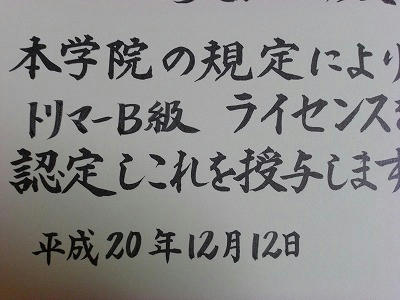 本学院の規定により
トリマーB級 ライセンスを
認定しこれを授与します
平成20年12月12日